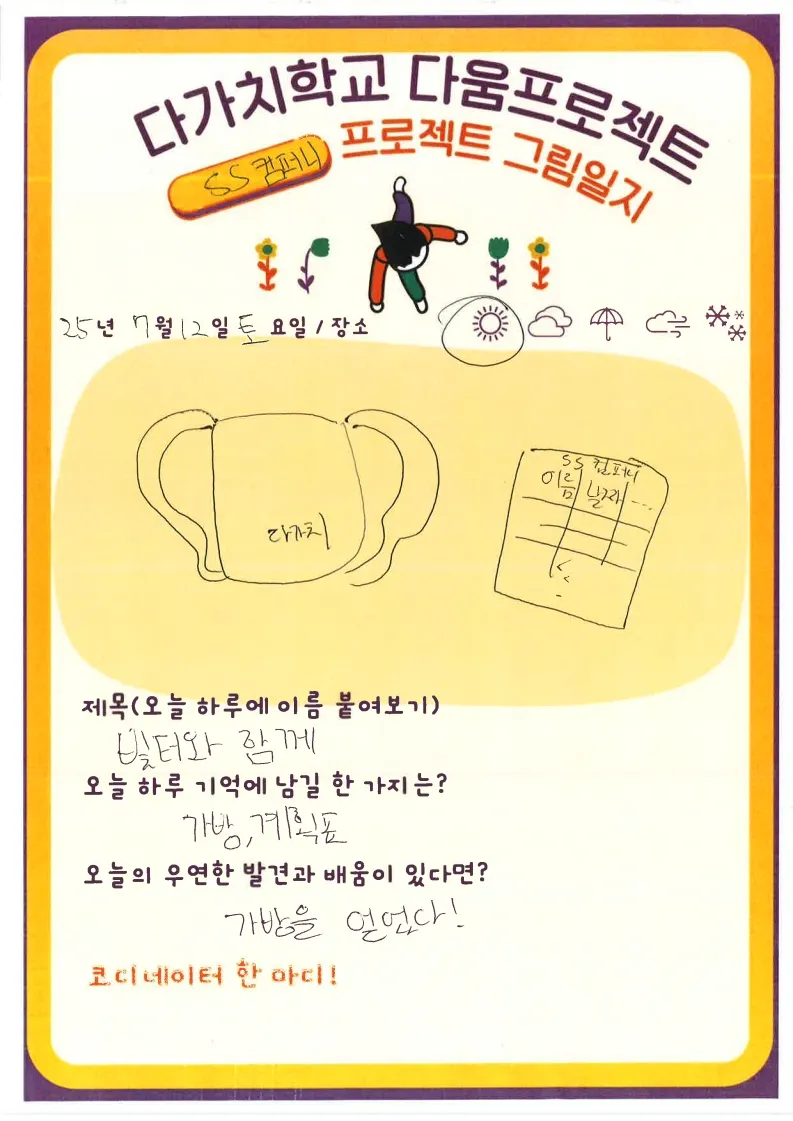 다가치학교 다움프로젝트
SS컴퍼니
프로젝트 그림일지
25년 7월 12일 토요일 / 장소
다가치
SS 컴퍼니
이름 날짜 ...
제목(오늘 하루에 이름 붙여보기)
빌터와 함께
오늘 하루 기억에 남길 한 가지는?
가방, 계획표
오늘의 우연한 발견과 배움이 있다면?
가방을 얻었다!
코디네이터 한 마디!